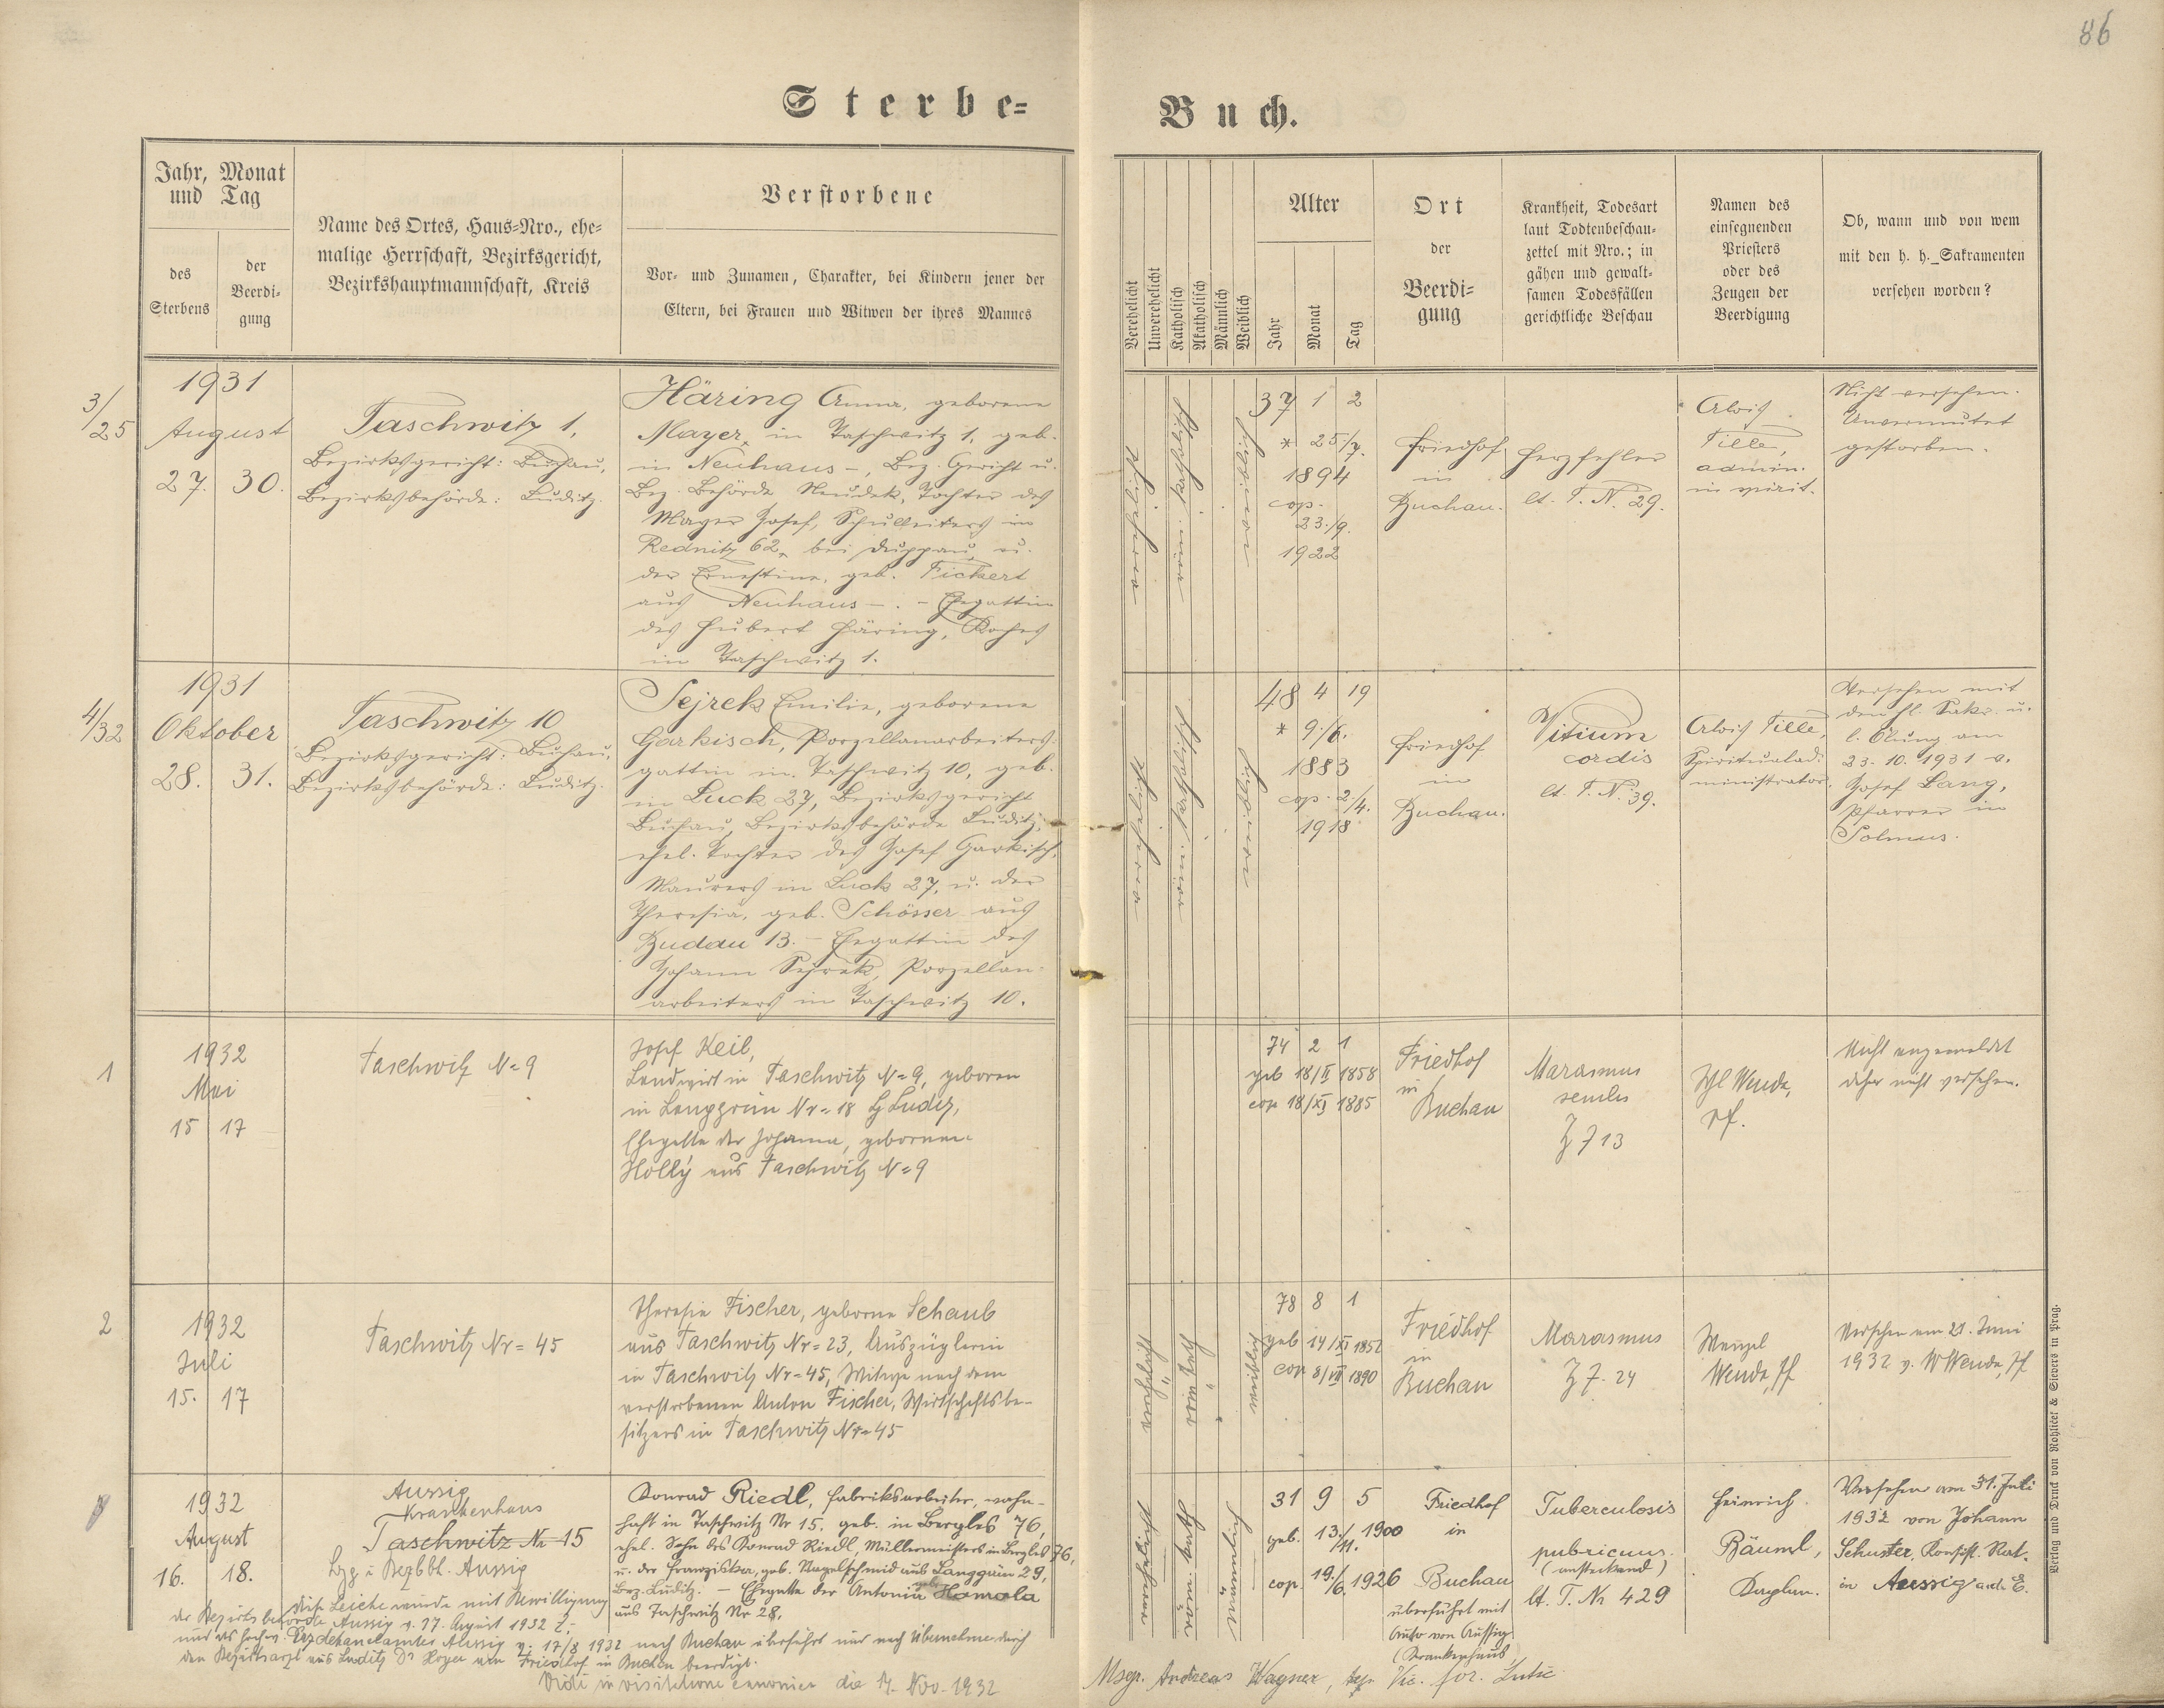 86
Sterbe-Buch.
Jahr, Monat
und Tag
des
Sterbens
der
Beerdi-
gung
Name des Ortes, Haus-Nro., ehe-
malige Herrschaft, Bezirksgericht,
Bezirkshauptmannschaft, Kreis
Verstorbene
Vor- und Zunamen, Charakter, bei Kindern jener der
Eltern, bei Frauen und Witwen der ihres Mannes
Verehelicht
Unverehelicht
Katholisch
Akatholisch
Männlich
Weiblich
Alter
Jahr
Monat
Tag
Ort
der
Beerdi-
gung
Krankheit, Todesart
laut Todtenbeschau-
zettel mit Nro.; in
gähen und gewalt-
samen Todesfällen
gerichtliche Beschau
Namen des
einsegnenden
Priesters
oder des
Zeugen der
Beerdigung
Ob, wann und von wem
mit den h. h. Sakramenten
versehen worden?
3/25
1931
August
27. 30.
Taschwitz 1,
Bezirksgericht: Buchau,
Bezirksbehörde: Luditz.
Häring Anna, geborene
Mayer, in Taschwitz 1, geb.
in Neuhaus -, Bez. Gericht u.
Bez. Behörde Neudek, Tochter des
Mayer Josef, Schulleiters in
Rednitz 62, bei Duppau, u.
der Ernestine, geb. Fickert
aus Neuhaus -. - Ehegattin
des Hubert Häring, Koches
in Taschwitz 1.
verehelicht
röm. katholisch
weiblich
37 1 2
* 25./7.
1894
cop.
23./9.
1922
Friedhof
in
Buchau.
Herzfehler
lt. T. N. 29.
Alois
Tille,
admin.
in spirit.
Nicht versehen.
Unvermutet
gestorben.
4/32
1931
Oktober
28. 31.
Taschwitz 10
Bezirksgericht: Buchau,
Bezirksbehörde: Luditz.
Sejrek Emilie, geborene
Garkisch, Porzellanarbeiters-
gattin in Taschwitz 10, geb.
in Luck 27, Bezirksgericht
Buchau, Bezirksbehörde Luditz,
ehel. Tochter des Josef Garkisch,
Maurers in Luck 27, u. der
Theresia, geb. Schösser aus
Budau 13. - Ehegattin des
Johann Sejrek, Porzellan-
arbeiters in Taschwitz 10.
verehelicht
röm. katholisch
weiblich
48 4 19
* 9./6.
1883
cop. 2./4.
1918
Friedhof
in
Buchau.
Vitium
cordis
lt. T. N. 39.
Alois Tille,
Spiritualad-
ministrator.
Versehen mit
den hl. Sakr. u.
l. Ölung am
23. 10. 1931 v.
Josef Lang,
Pfarrer in
Solmus.
1
1932
Mai
15 17
Taschwitz N=9
Josef Keil,
Landwirt in Taschwitz N=9, geboren
in Langgrün Nr=18 Luditz,
Ehegatte der Johanna, geborenen
Holly aus Taschwitz N=9
74 2 1
geb 18/II 1858
cop 18/XI 1885
Friedhof
in
Buchau
Marasmus
senilis
Z 713
Wenda,
Pf.
Nicht angemeldet
daher nicht versehen.
2
1932
Juli
15. 17
Taschwitz Nr=45
Theresia Fischer, geborne Schaub
aus Taschwitz Nr=23, Auszüglerin
in Taschwitz Nr=45, Witwe nach dem
verstorbenen Anton Fischer, Wirtschaftsbe-
sitzers in Taschwitz Nr=45
verehelicht
röm kath
weiblich
78 8 1
geb 14/XI 1852
cop 8/VII 1890
Friedhof
in
Buchau
Marasmus
Z 7. 24
Wenzel
Wenda, Pf
Versehen am 21. Juni
1932 v. W Wenda, Pf
1932
August
16. 18.
Aussig
Krankenhaus
Taschwitz Nr 15
Bzg u Bezbh. Aussig
Konrad Riedl, Fabriksarbeiter, wohn-
haft in Taschwitz Nr 15. geb. in Bergles 76,
ehel. Sohn des Konrad Riedl, Müllermeisters in Bergles 76,
u. der Franziska, geb. Nagelschmid aus Langgrün 29,
Bez. Luditz. - Ehegatte der Antonia geb. Homola
aus Taschwitz Nr 28.
verehelicht
röm. kath
männlich
31 9 5
geb. 13./11. 1900
cop. 19./6 1926
Friedhof
in
Buchau
überführt mit
Auto von Aussig
(Krankenhaus
Tuberculosis
(ansteckend)
lt. T. Nr 429
Heinrich
Bäuml,
Kaplan.
Versehen am 31. Juli
1932 von Johann
Schuster, Konsist. Rat.
in Aussig a. d. E.
Die Leiche wurde mit Bewilligung
der Bezirksbehörde Aussig v. 17. August 1932 Z.
und des hochw. Erzdekanalamtes Aussig v. 17/8 1932 nach Buchau überführt und nach Übernahme durch
den Bezirksarzt aus Luditz Dr Hoyer am Friedhof in Buchau beerdigt.
Vidi in visitatione canonica die 17. Nov. 1932 Msgr. Andreas Wagner, Vic. for. Lutic.
Verlag und Druck von Rohlicek & Sievers in Prag.